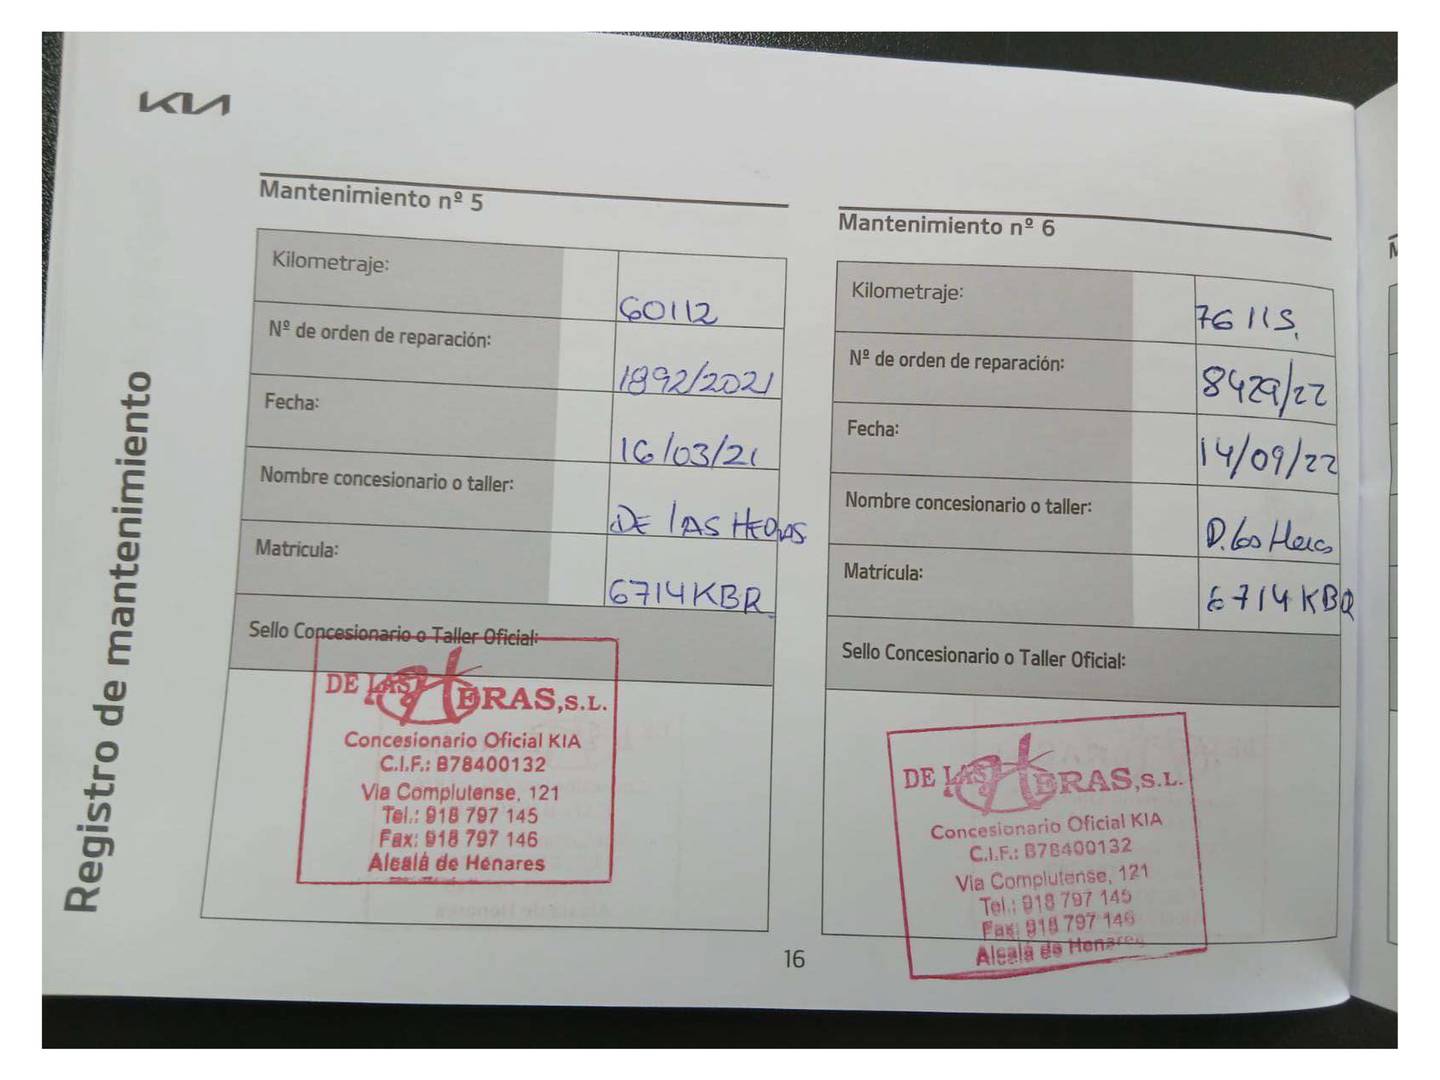 KIA
Registro de mantenimiento
Mantenimiento nº 5
Kilometraje:
60112
Nº de orden de reparación:
1892/2021
Fecha:
16/03/21
Nombre concesionario o taller:
DE LAS HERAS
Matrícula:
6714KBR
Sello Concesionario o Taller Oficial:
DE LAS HERAS, S.L.
Concesionario Oficial KIA
C.I.F.: B78400132
Via Complutense, 121
Tel.: 918 797 145
Fax: 918 797 146
Alcalá de Henares
Mantenimiento nº 6
Kilometraje:
76115
Nº de orden de reparación:
8429/22
Fecha:
14/09/22
Nombre concesionario o taller:
D. las Heras
Matrícula:
6714KBR
Sello Concesionario o Taller Oficial:
DE LAS HERAS, S.L.
Concesionario Oficial KIA
C.I.F.: B78400132
Via Complutense, 121
Tel.: 918 797 145
Fax: 918 797 146
Alcalá de Henares
16